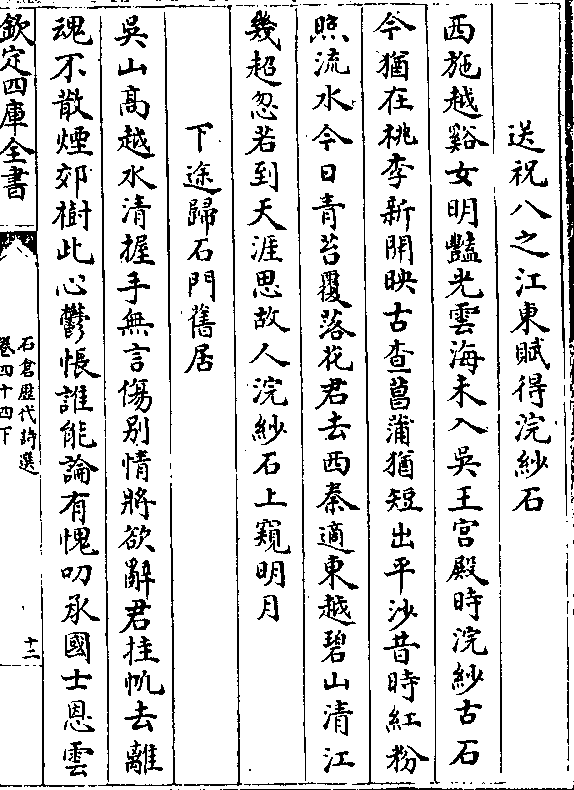 送祝八之江東賦得浣紗石
西施越谿女明豔光雲海未入吳王宮殿時浣紗古石
今猶在桃李新開映古查菖蒲猶短出平沙昔時紅粉
照流水今日青苔覆落花君去西秦適東越碧山清江
幾超忽若到天涯思故人浣紗石上窺明月
下途歸石門舊居
吳山高越水清握手無言傷别情將欲辭君挂帆去離
魂不散煙郊樹此心鬱悵誰能論有愧叨承國士恩雲
欽定四庫全書
石倉歷代詩選
卷四十四下
十二